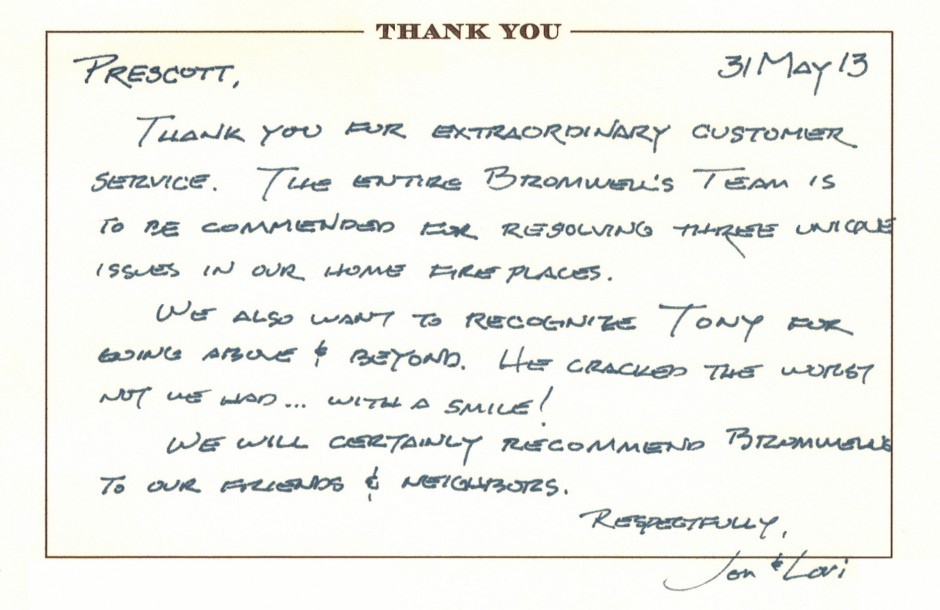 THANK YOU
PRESCOTT, 31 MAY 13
THANK YOU FOR EXTRAORDINARY CUSTOMER
SERVICE. THE ENTIRE BROMWELL'S TEAM IS
TO BE COMMENDED FOR RESOLVING THREE UNIQUE
ISSUES IN OUR HOME FIREPLACES.
WE ALSO WANT TO RECOGNIZE TONY FOR
GOING ABOVE & BEYOND. HE CRACKED THE WORST
NUT WE HAD... WITH A SMILE!
WE WILL CERTAINLY RECOMMEND BROMWELLS
TO OUR FRIENDS & NEIGHBORS.
RESPECTFULLY,
Jon & Lori